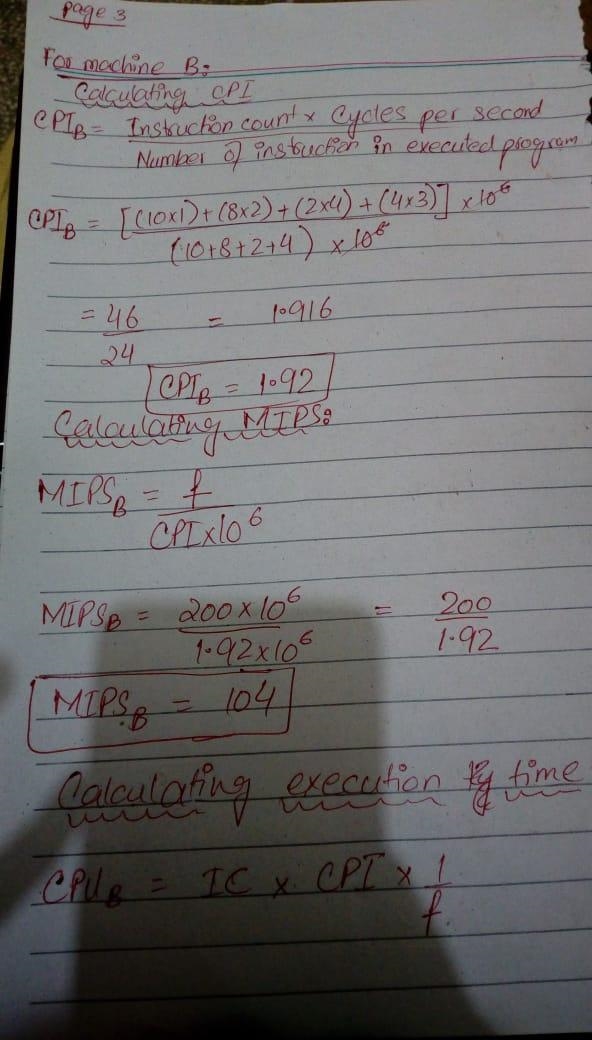 Page 3
For machine B:
Calculating CPI
CPI_B = Instruction count x Cycles per second
Number of instruction in executed program
CPI_B = [(10x1)+(8x2)+(2x4)+(4x3)] x10^6
(10+8+2+4) x 10^6
= 46 = 1.916
24
CPI_B = 1.92
Calculating MIPS:
MIPS_B = f
CPIx10^6
MIPS_B = 200x10^6 = 200
1.92x10^6 1.92
MIPS_B = 104
Calculating execution time
CPU_B = IC x CPI x 1
f